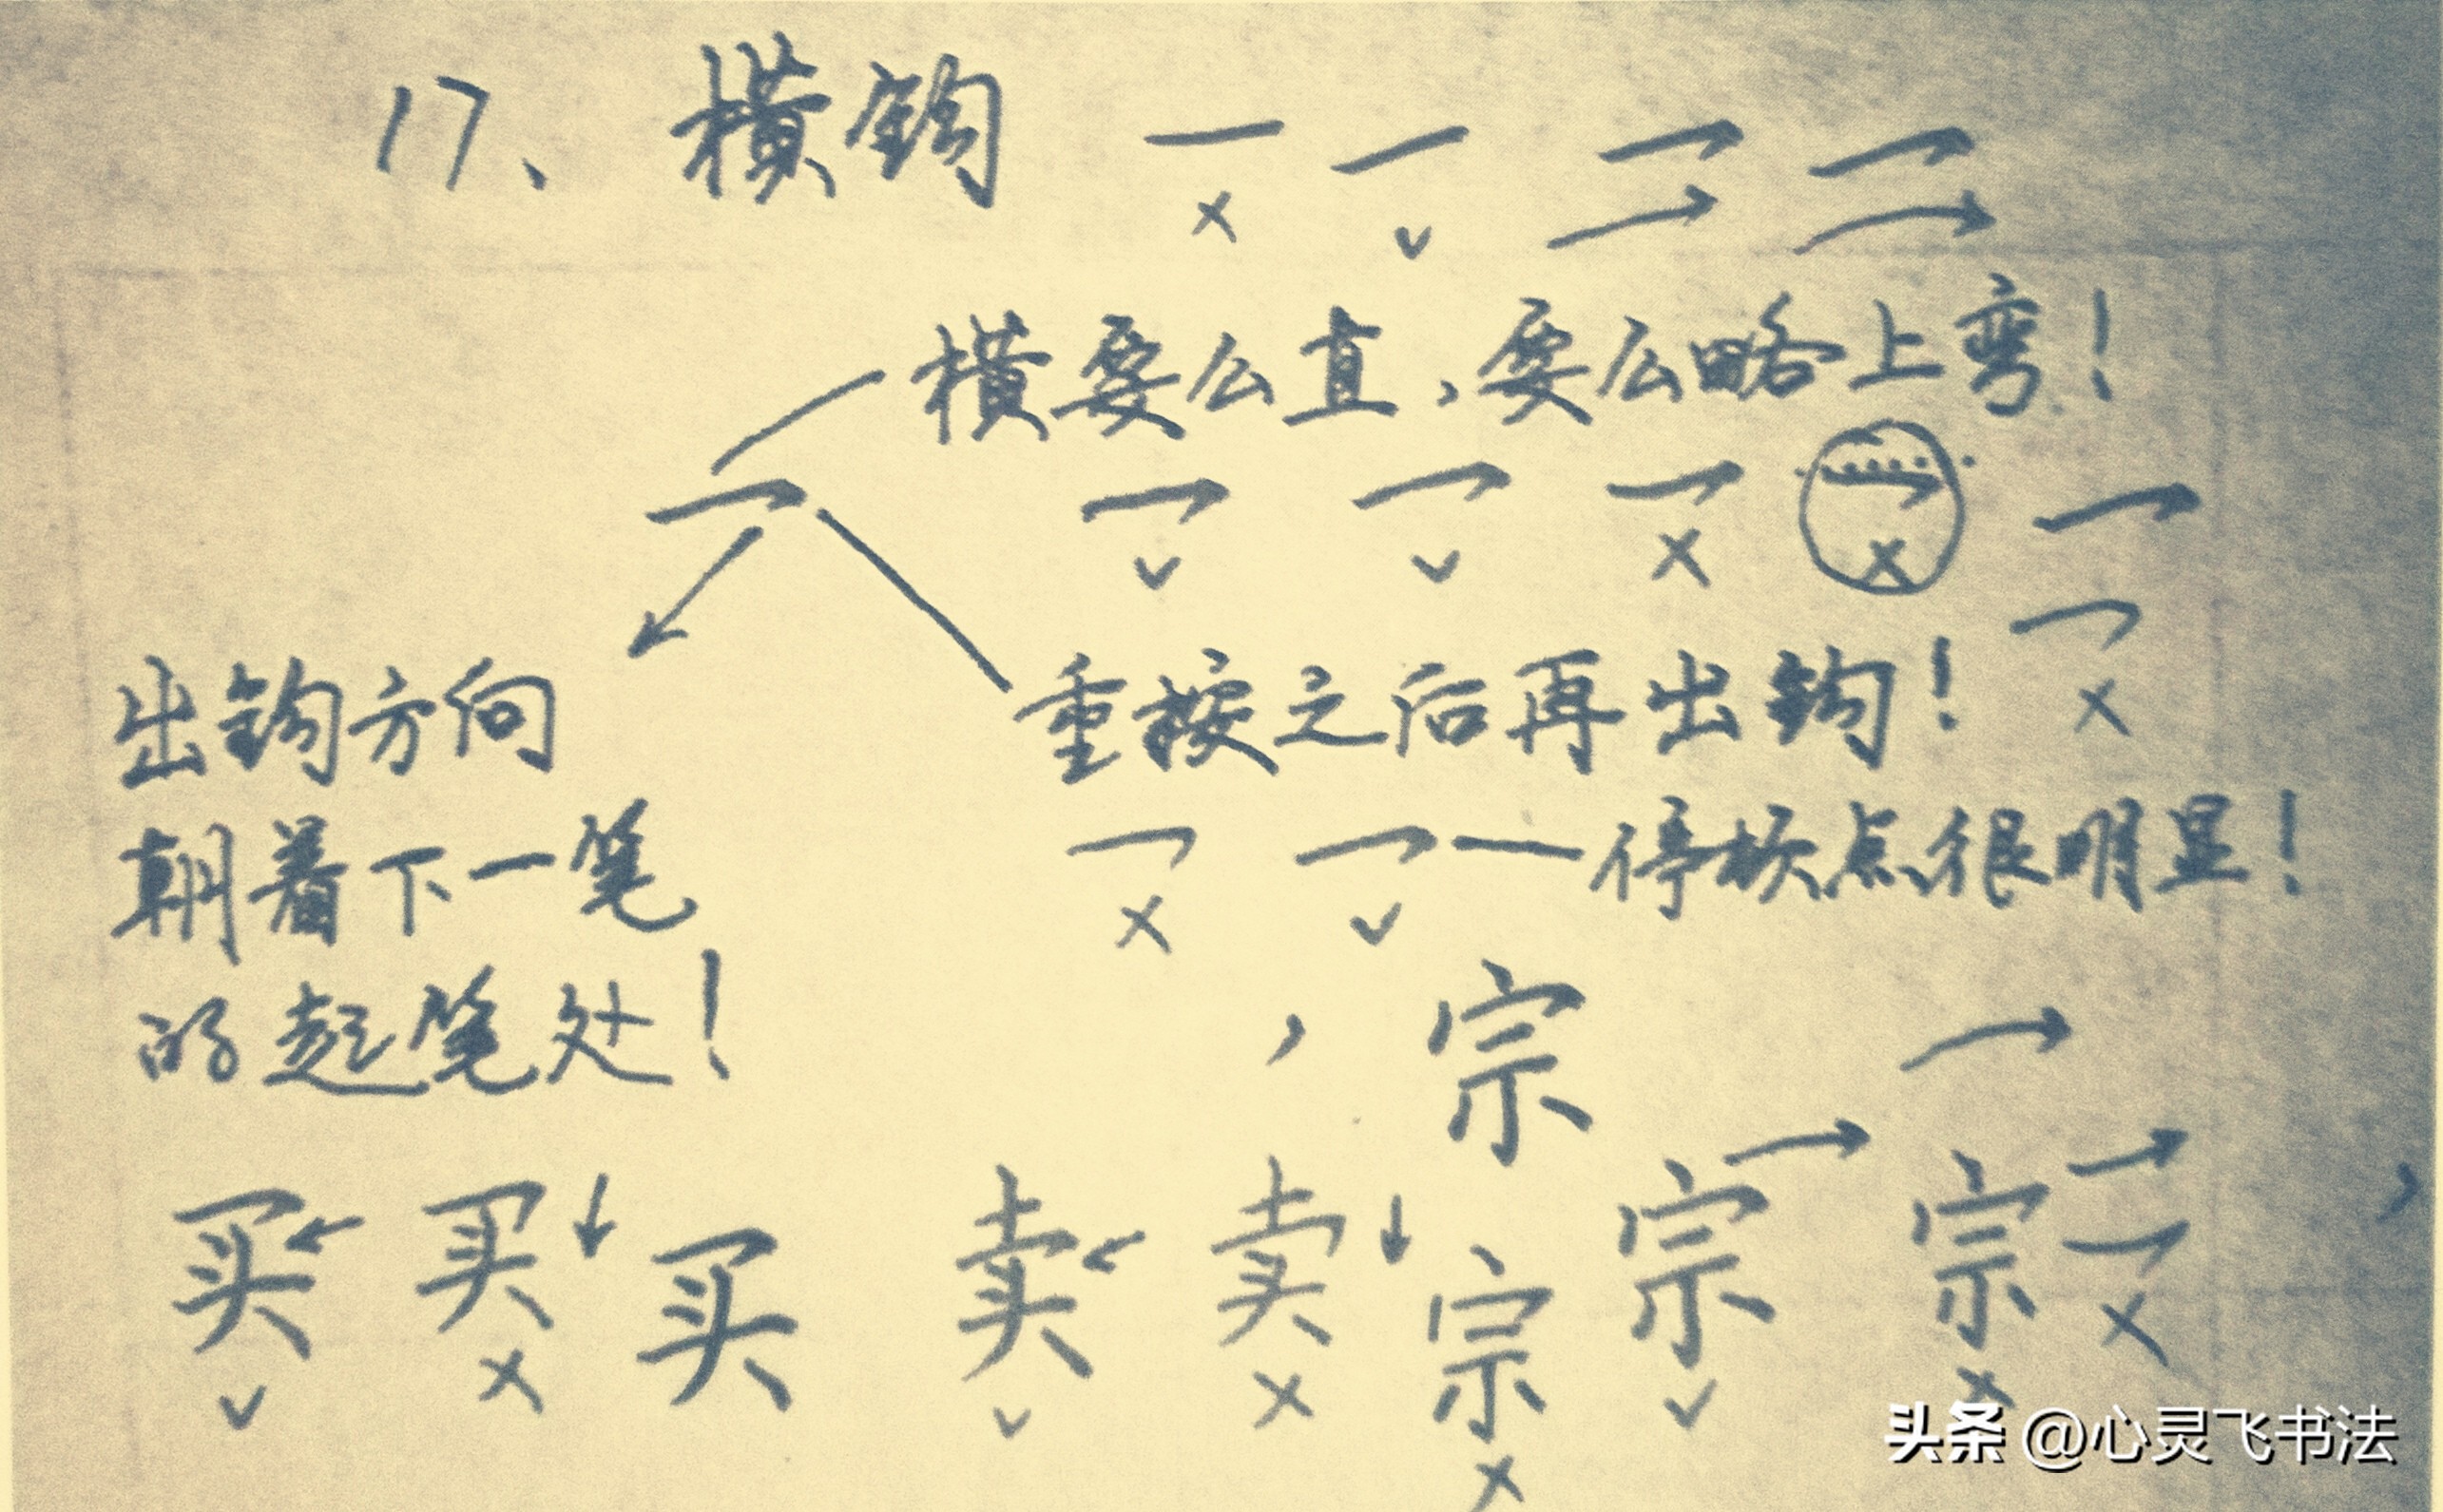 17、横钩
横要么直,要么略上弯!
重按之后再出钩!
停顿点很明显!
出钩方向
朝着下一笔
的起笔处!
宗
买 买 买 卖 卖 宗 宗 宗
头条 @心灵飞书法